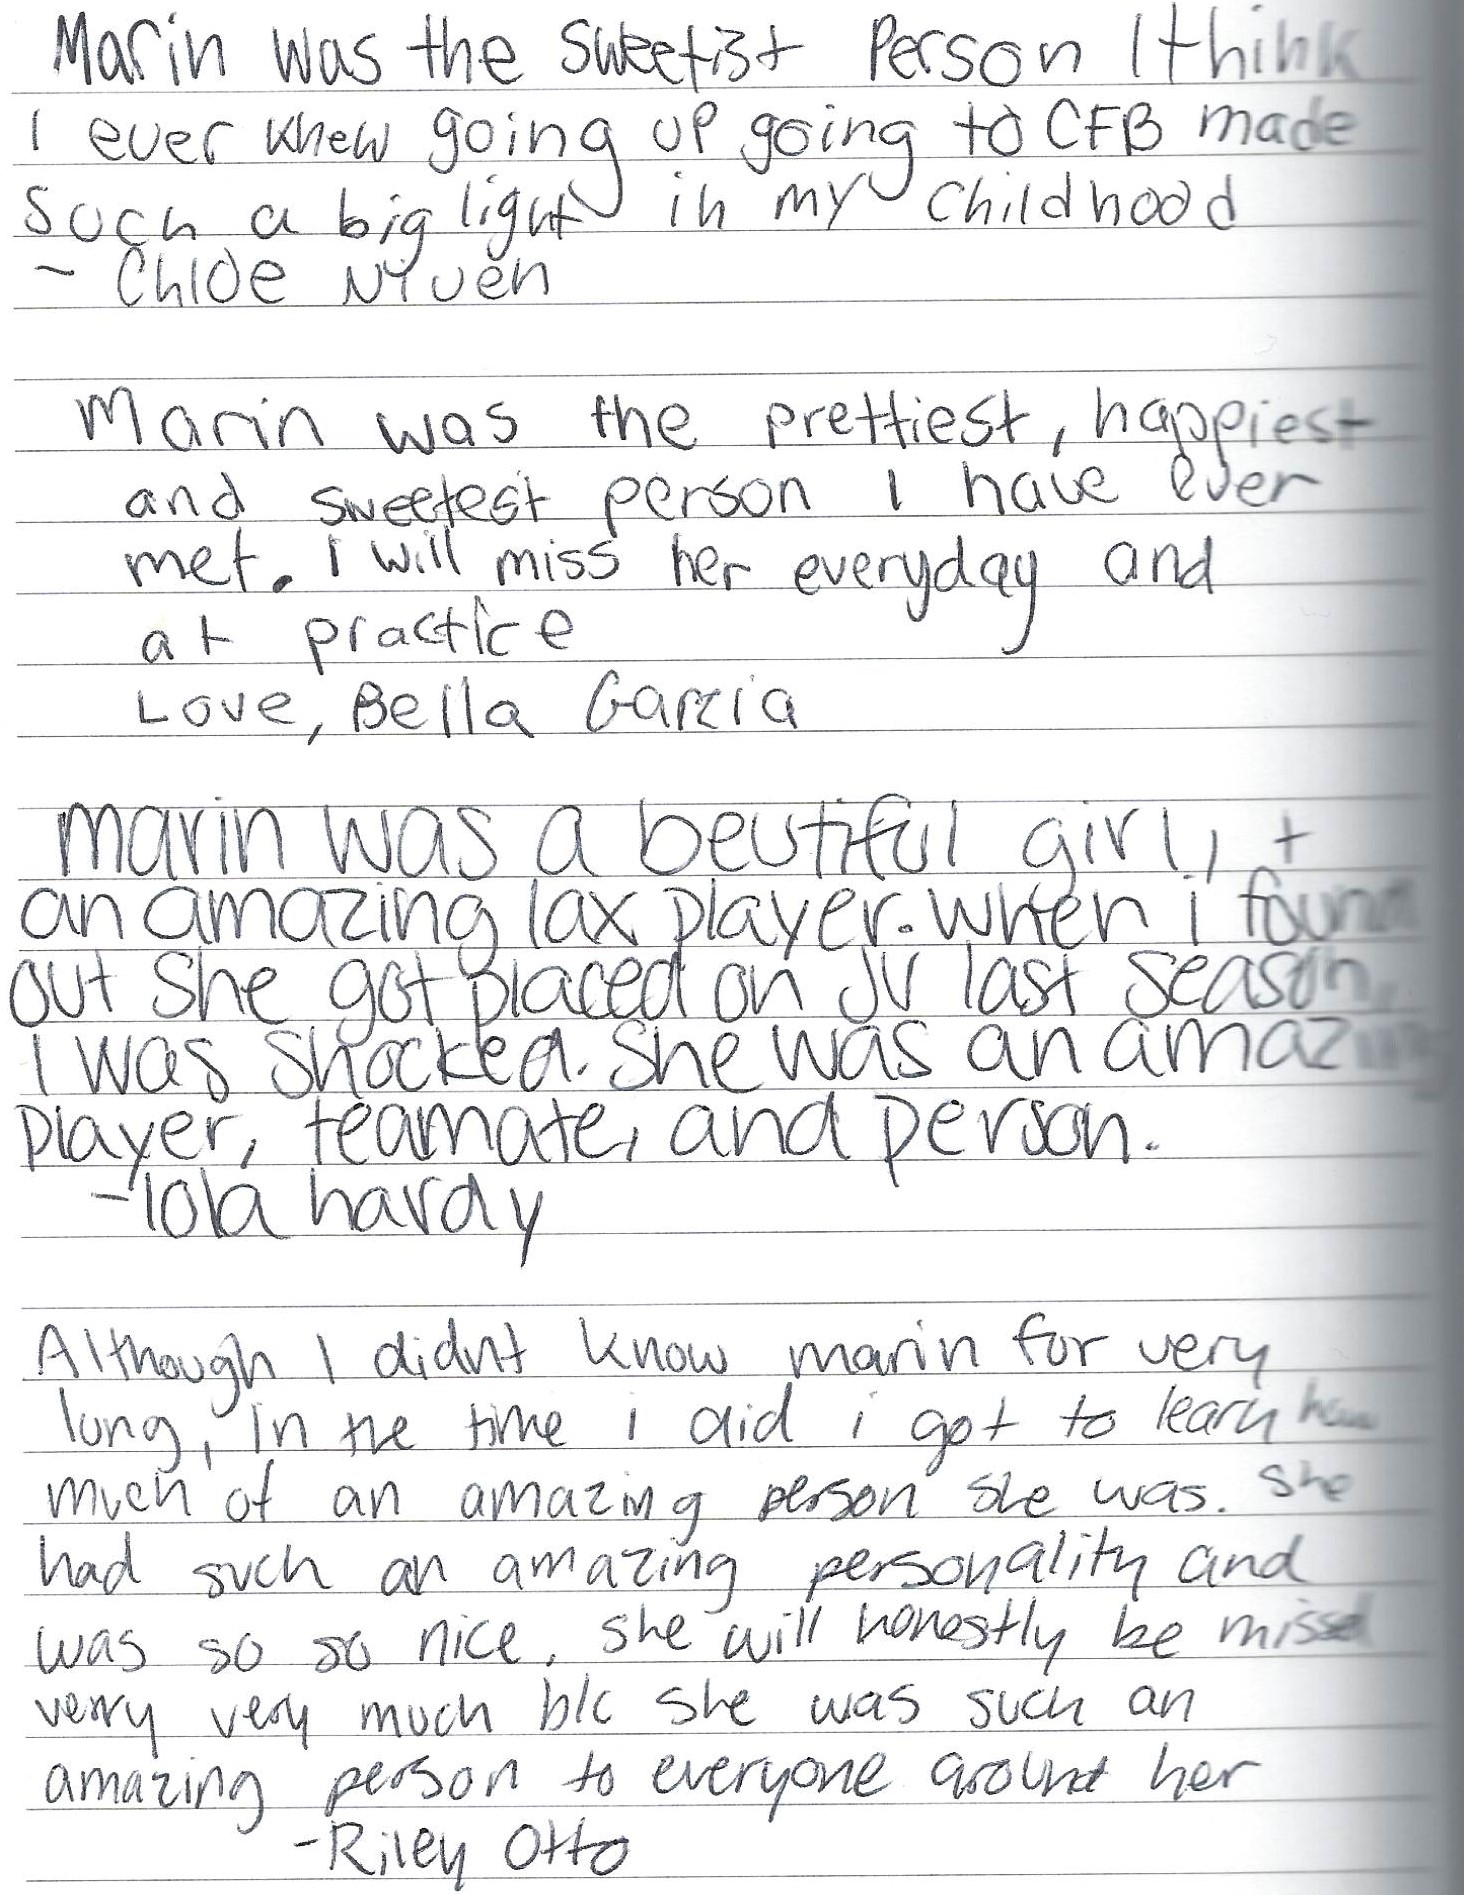 Marin was the sweetist Person I think
I ever knew going up going to CFB made
Such a big light in my childhood
~ Chloe Niven
Marin was the prettiest, happiest
and sweetest person I have ever
met. I will miss her everyday and
at practice
Love, Bella Garcia
marin was a beutiful girl, +
an amazing lax player. When i found
out she got placed on JV last season,
I was shocked. She was an amazing
player, teamate, and person.
-lola hardy
Although I didnt know marin for very
long, in the time i did i got to learn how
much of an amazing person she was. she
had such an amazing personality and
was so so nice. she will honestly be missed
verry very much b/c she was such an
amazing person to everyone around her
-Riley Otto